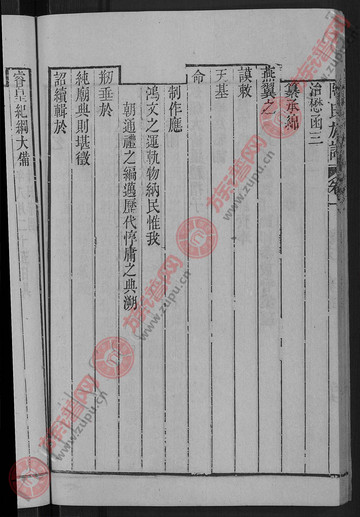 陳氏族譜
治懋函三
纂承鄉
燕翼之
謨敷
天基
命
制作應
鴻文之運軌物納民惟我
朝通禮之編邁歷代惇庸之典溯
刱垂於
純廟典則堪徵
詔續輯於
睿皇紀綱大備
族譜网
www.zupu.cn